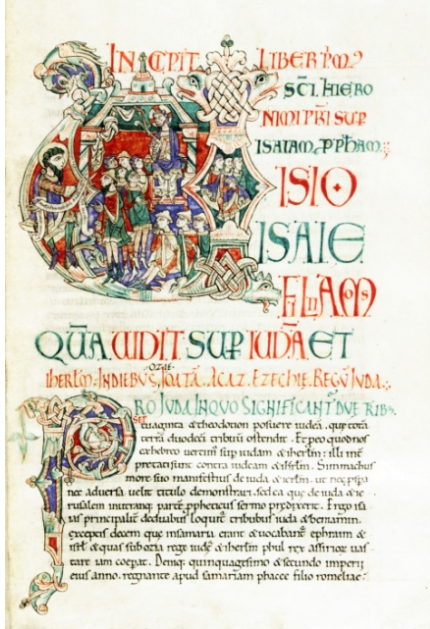 INCIPIT LIBER PM'
SCI HIERO
NIMI PRI SUP
ISAIAM PPHAM
VISIO
ISAIE
FILII AMOS
QUA UIDIT SUP IUDA ET
IHERLM IN DIEBUS OZIE IOATA ACAZ EZECHIE REGU IUDA
PRO IUDA IN QUO SIGNIFICANT DUE TRIB'
Septuaginta & theodotion posuere iudea, que tota
terra duodeci tribuu ostendit. Et p eo quod nos
ex hebreo uertim' sup iudam & iherlm: illi inter
pretati sunt contra iudeam & ihrlm. Simmachus
more suo manifestius de iuda & ihrlm. ut nec pspa
nec aduersa uelit tituli demonstrari. sed ea que de iuda & ie
rusalem in utranq; parte ppheticus sermo pdixerit. Ergo isa
ias principalit de duabus loquit tribubus iuda & beniamin.
exceptis decem que in samaria erant & uocabant ephraim &
isrl. & quas sub ozia rege iude & iherlm phul rex assirior uas
tare iam ceperat. Deniq; quinquagesimo & secundo imperii
eius anno. regnante apud samariam phacee filio romeliae